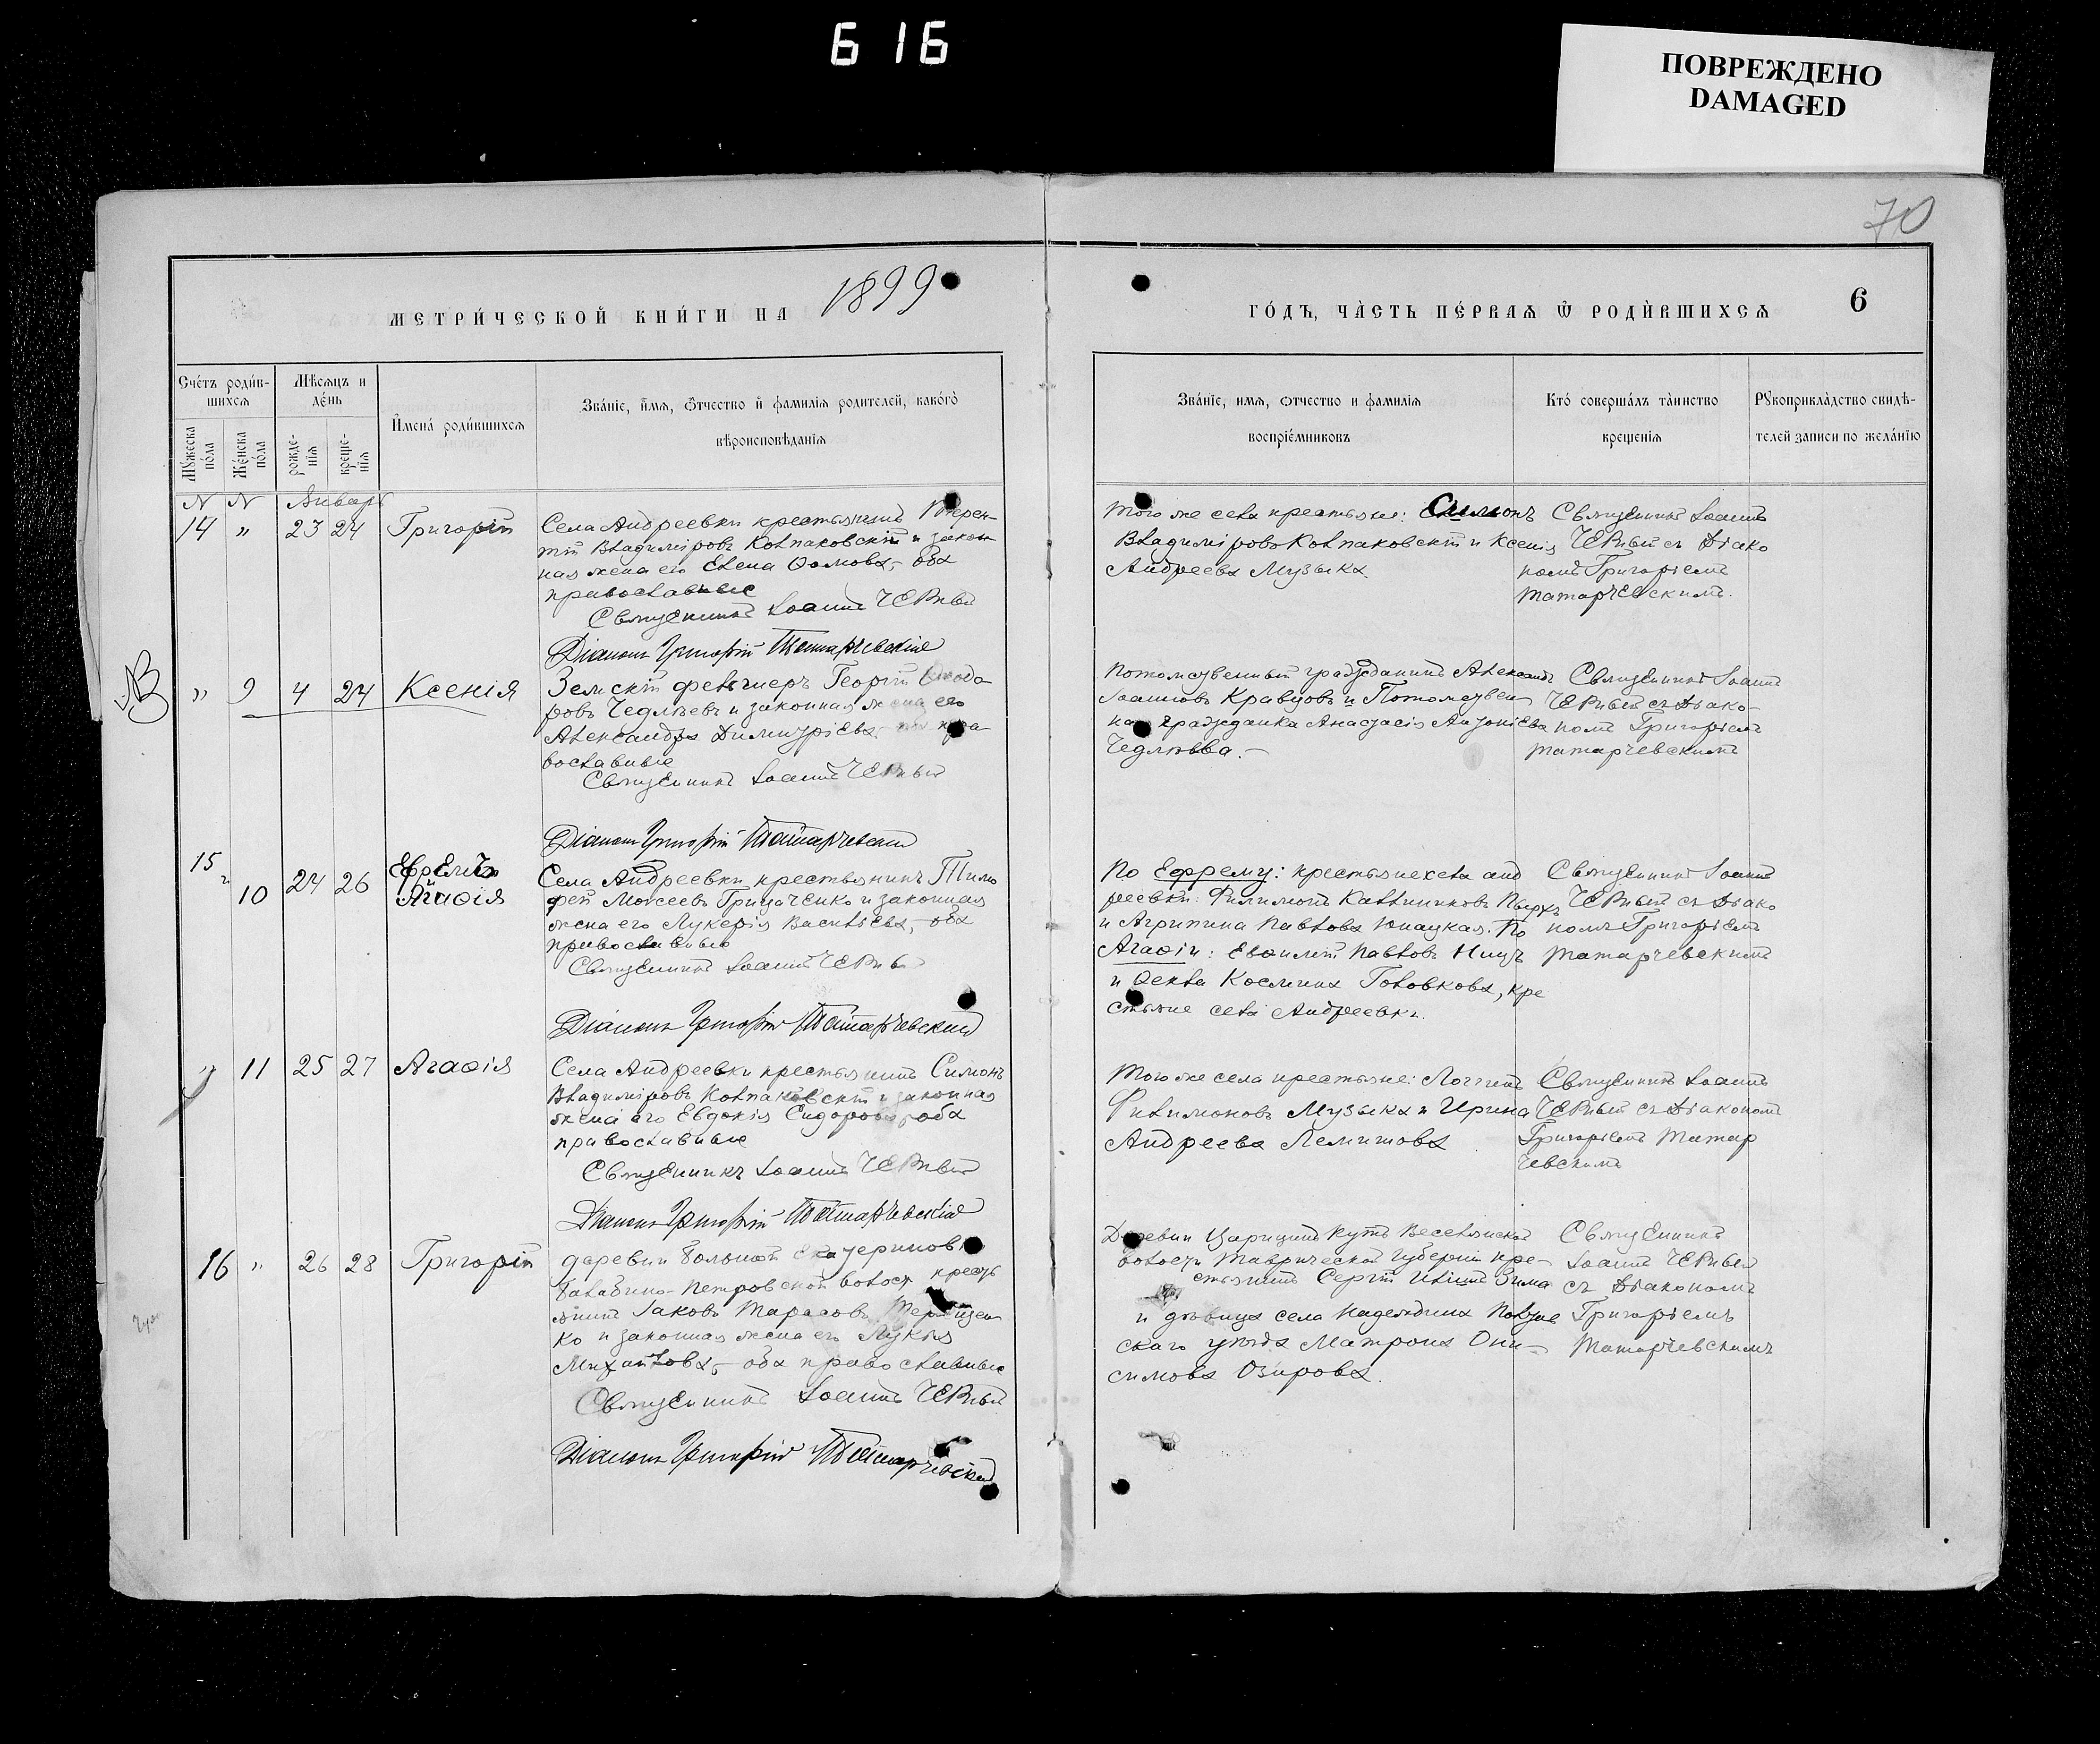 6 16
ПОВРЕЖДЕНО
DAMAGED
70
МЕТРИ́ЧЕСКОЙ КНИ́ГИ НА 1899
ГО́ДЪ, ЧА̀СТЬ ПЕ́РВАѦ Ѿ РОДЍВШИХСѦ 6
Сче́тъ роди́в-
шихсѧ
Мѣ́сѧцъ и
де́нь
И҆мена̀ роди́вшихсѧ
Зва́нїе, и҆́мѧ, ѻ҆́тчество и҆ фамилїѧ родителей, како́гѡ
вѣроисповѣ́данїѧ
Мꙋ́жеска
по́ла
Же́нска
по́ла
рожде́-
нїѧ
креще́-
нїѧ
Зва́нїе, имѧ, ѻтчество и фамилїѧ
воспрїе́мниковъ
Кто́ соверша́лъ та́инство
крещенїѧ
Рꙋкоприкла́дство свидѣ́-
телей записи по жела́нїю
N N Январь
14 " 23 24 Григорій
Села Андреевки крестьянинъ Терен-
тій Владиміровъ Колпаковскій и закон
ная жена его Елена Ѳомова, оба
православные
Священникъ Іоаннъ Черный
Діаконъ Григорій Татарчевскій
Того же села крестьяне: Симонъ
Владиміровъ Колпаковскій и Ксенія
Андреева Музыка.
Священникъ Іоаннъ
Черный съ діако
номъ Григоріемъ
Татарчевскимъ.
" 9 4 24 Ксенія
Земскій фельдшеръ Георгій Ѳеодо
ровъ и законная жена его
Александра Димитріева, пра-
вославные
Священникъ Іоаннъ Черный
Діаконъ Григорій Татарчевскій
Потомственный гражданинъ Александръ
Іоанновъ Кравцовъ и Потомствен
ная гражданка Анастасія Антоніева
Священникъ Іоаннъ
Черный съ діако-
номъ Григоріемъ
Татарчевскимъ
15 и
10 24 26 Ефремъ
и
Агаѳія
Села Андреевки крестьянинъ Тимо
фей Моисеевъ Гриценко и законная
жена его Лукерія Васильева, оба
православные
Священникъ Іоаннъ Черный
Діаконъ Григорій Татарчевский
По Ефрему: крестьяне села Анд
реевки: Филимонъ Калинниковъ
и Агрипина Павлова По
Агаѳіи: Евѳимій Павловъ
и Ѳекла Косьмина Головкова, кре
стьяне села Андреевки.
Священникъ Іоаннъ
Черный съ діако
номъ Григоріемъ
Татарчевскимъ
" 11 25 27 Агаѳія
Села Андреевки крестьянинъ Симонъ
Владиміровъ Колпаковскій и законная
жена его Евдокія Сидорова, оба
православные
Священникъ Іоаннъ Черный
Діаконъ Григорій Татарчевскій
Того же села крестьяне: Логгинъ
Филимоновъ Музыка и Ирина
Андреева
Священникъ Іоаннъ
Черный съ діакономъ
Григоріемъ Татар
чевскимъ
16 " 26 28 Григорій
деревни Большой Екатериновки
Балабино-Петровской волост кресть
янинъ Іаковъ Тарасовъ
ко и законная жена его Лукія
Михайлова, оба православные
Священникъ Іоаннъ Черный
Діаконъ Григорій Татарчевский
Деревни Царицинъ Кутъ Веселянской
волости Таврической Губерніи кре-
стьянинъ Сергій Ильинъ Зима
и дѣвица села Надеждина Павлов
скаго уѣзда Матрона Они-
симова Озирова.
Священникъ
Іоаннъ Черный
съ діакономъ
Григоріемъ
Татарчевскимъ